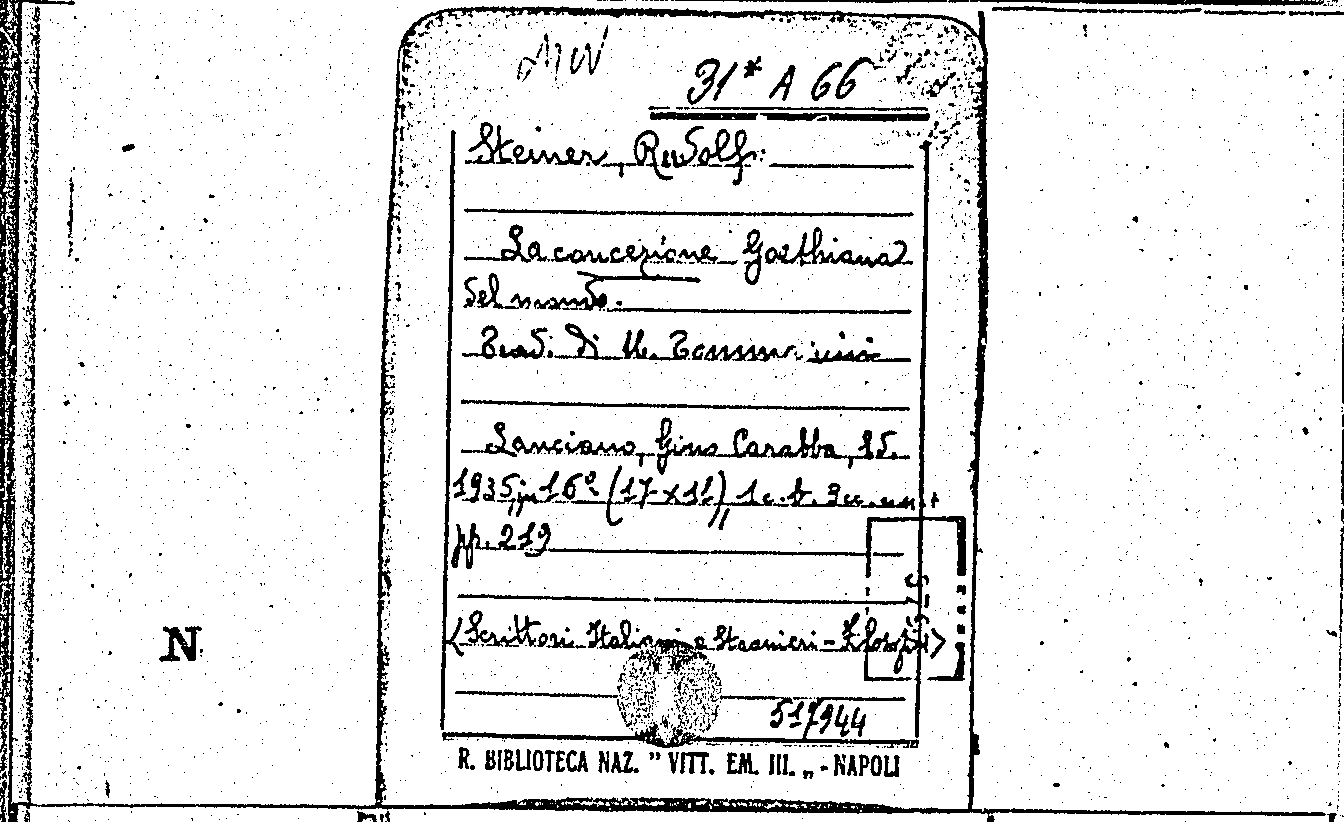 31* A 66
Steiner, Rudolf:
La concezione Goethiana
del mondo.
Trad. di
Lanciano, Gino Carabba, Ed.
1935, in 16º (17 x 11), 1 c. b. 3 cc. n.n. +
pp. 219
<Scrittori Italiani e Stranieri - Filosofia>
N
517944
R. BIBLIOTECA NAZ. " VITT. EM. III. „ - NAPOLI